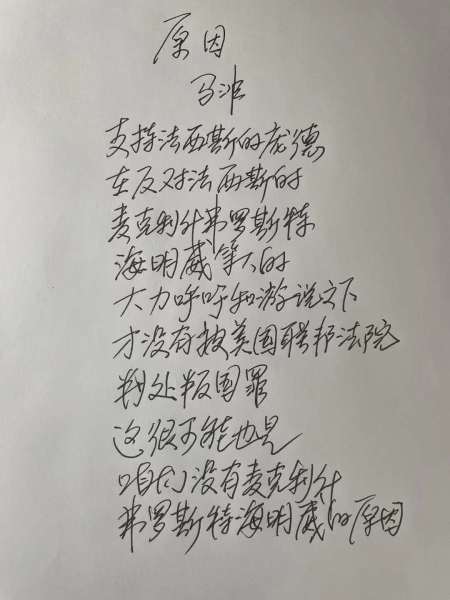 原因
马非
支持法西斯的庞德
在反对法西斯的
麦克利什弗罗斯特
海明威等人的
大力呼吁和游说之下
才没有被美国联邦法院
判处叛国罪
这很可能也是
咱们没有麦克利什
弗罗斯特海明威的原因